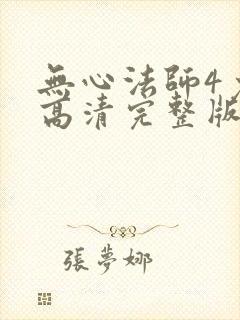 無心法師4
高清完整版
張夢娜